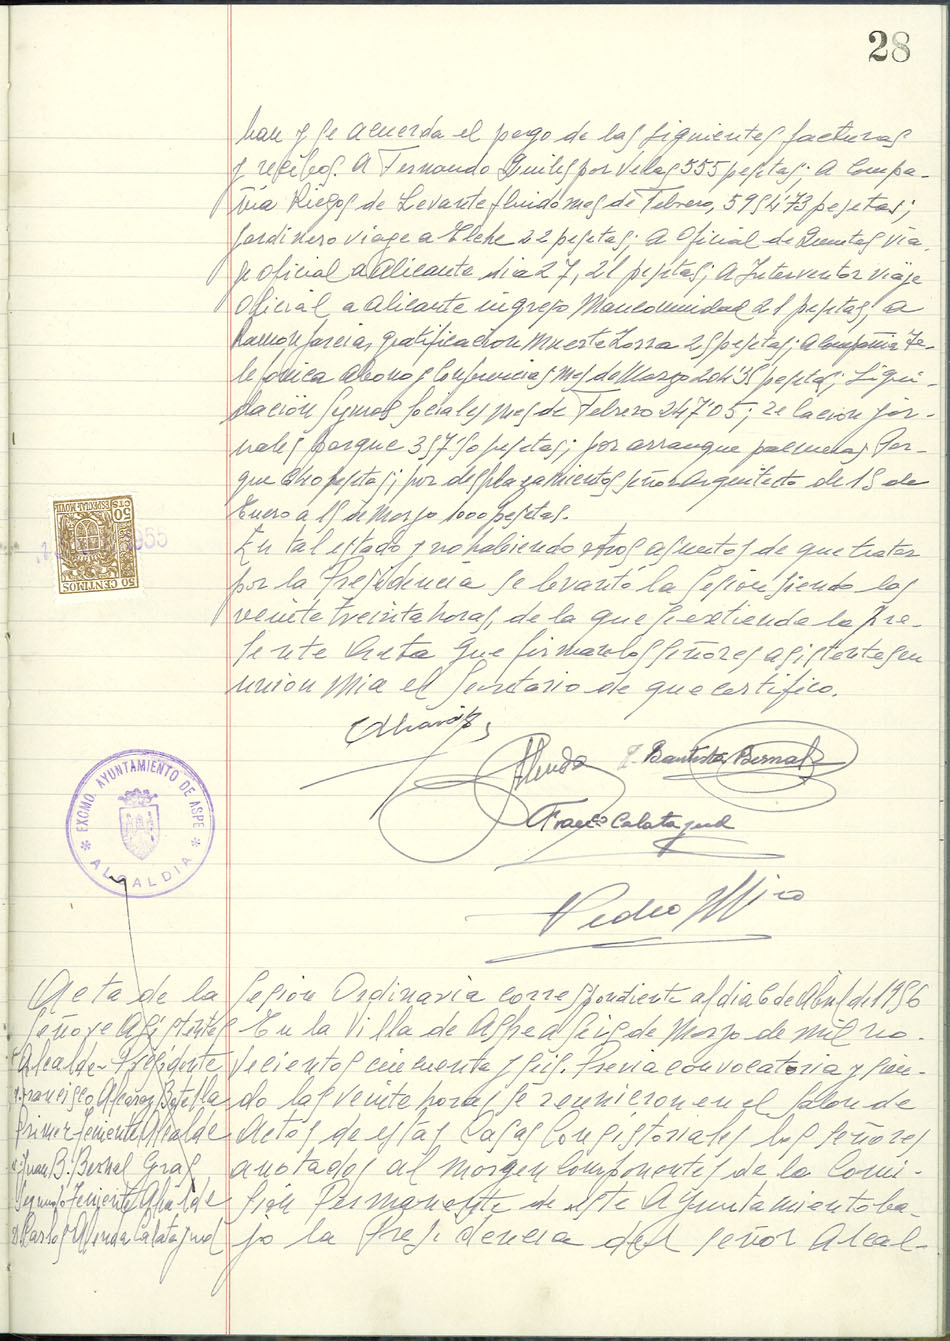 28
ban y se acuerda el pago de las siguientes facturas
y recibos. A Fernando Quiles por velas 555 pesetas; A Compa-
ñia Riegos de Levante fluido mes de Febrero, 5954'73 pesetas;
Jardinero viage a Elche 22 pesetas; a Oficial de Quintas via-
je oficial a Alicante dia 27, 21 pesetas; A Interventor viaje
Oficial a Alicante ingreso Mancomunidad 21 pesetas, a
Ramon Garcia, gratificacion muerte Zorra 25 pesetas; a Compañia Te-
lefonica abonos Conferencias mes de Marzo 204'35 pesetas; Liqui-
dación seguros sociales mes de Febrero 247'05; relacion jor-
nales parque 357'50 pesetas; por arranque palmeras Par-
que pesetas; por desplazamientos señor Arquitecto de 15 de
Enero a 15 de Marzo 1000 pesetas.
En tal estado y no habiendo otros asuntos de que tratar
por la Presidencia se levantó la sesion siendo las
veinte treinta horas, de la que se extiende la pre-
sente Acta que firman los señores asistentes en
union mia el Secretario de que certifico.
50 CENTIMOS
ESPECIAL MOVIL
50 CTS
1955
Alcaraz
Allenda
J. Bautista Bernal
Franco Calatayud
EXCMO. AYUNTAMIENTO DE ASPE
ALCALDIA
Pedro Miro
Acta de la Sesion Ordinaria correspondiente al dia 6 de Abril de 1956
Señores Asistentes
Alcalde-Presidente
Francisco Alcaraz Botella
Primer Teniente Alcalde
Juan B. Bernal Gras
Segundo Teniente Alcalde
D. Carlos Allenda Calatayud
En la Villa de Aspe a seis de Marzo de mil no-
vecientos cincuenta y seis. Previa convocatoria y sien-
do las veinte horas se reunieron en el salon de
Actos de estas Casas Consistoriales los señores
anotados al margen componentes de la Comi-
sion Permanente de este Ayuntamiento ba-
jo la Presidencia del señor Alcal-